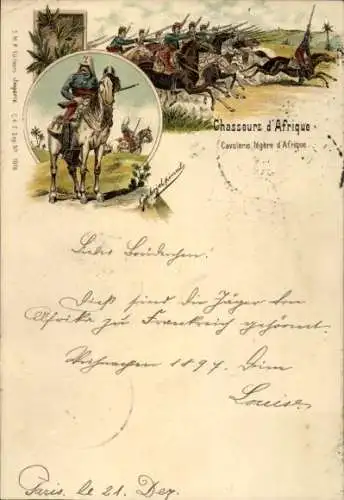 Chasseurs d'Afrique
Cavalerie légère d'Afrique
Liebes Brüderchen!
Dieß sind die Jäger von
Afrika zu Frankreich gehörend.
Weihnachten 1897. Deine
Louise
Paris. le 21. Dez.